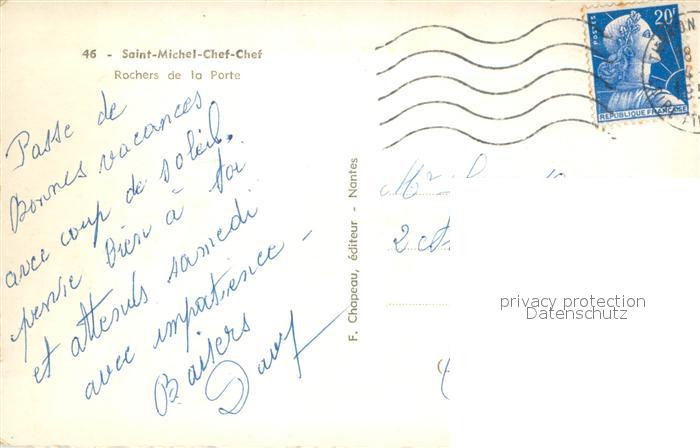 46 - Saint-Michel-Chef-Chef
Rochers de la Porte
Passe de
Bonnes vacances
avec coup de soleil.
pense bien à toi
et attends samedi
avec impatience -
Baisers
F. Chapeau, éditeur - Nantes
POSTES
20F
REPUBLIQUE FRANÇAISE
2
privacy protection
Datenschutz